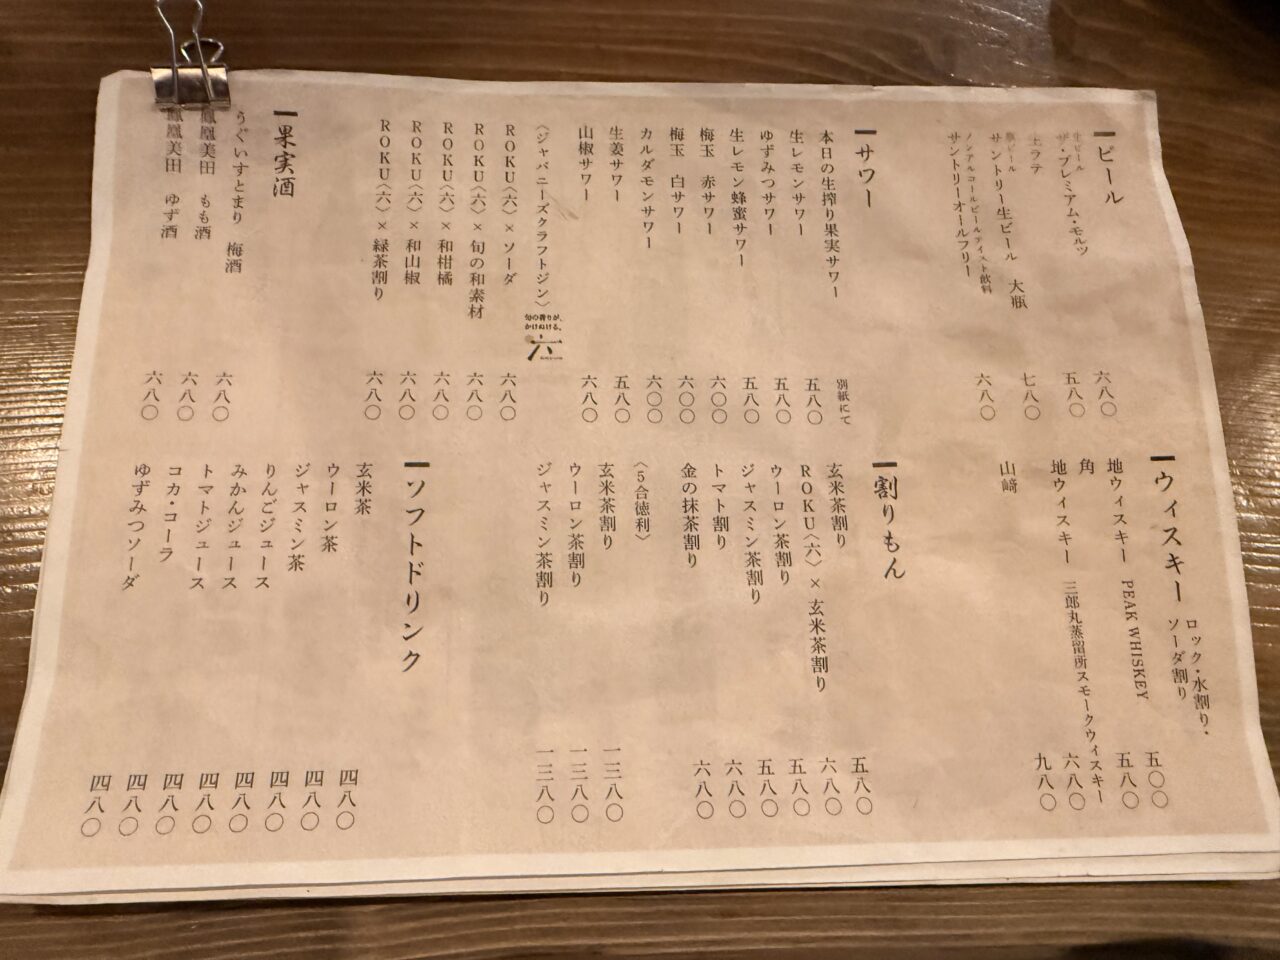 ビール
生ビール
ザ・プレミアム・モルツ 六八〇
五八〇
サントリー生ビール 大瓶 七八〇
ノンアルコールビールテイスト飲料
サントリーオールフリー 六八〇
サワー
本日の生搾り果実サワー 別紙にて
生レモンサワー 五八〇
ゆずみつサワー 五八〇
生レモン蜂蜜サワー 五八〇
梅玉 赤サワー 六〇〇
梅玉 白サワー 六〇〇
カルダモンサワー 六〇〇
生姜サワー 五八〇
山椒サワー 六八〇
〈ジャパニーズクラフトジン〉
旬の香りが、
かけぬける。
六
ROKU〈六〉×ソーダ 六八〇
ROKU〈六〉×旬の和素材 六八〇
ROKU〈六〉×和柑橘 六八〇
ROKU〈六〉×和山椒 六八〇
ROKU〈六〉×緑茶割り 六八〇
果実酒
うぐいすとまり 梅酒 六八〇
鳳凰美田 もも酒 六八〇
鳳凰美田 ゆず酒 六八〇
ウィスキー
ロック・水割り・
ソーダ割り
地ウィスキー PEAK WHISKEY 五〇〇
角 五八〇
地ウィスキー 三郎丸蒸留所スモークウィスキー 六八〇
山崎 九八〇
割りもん
玄米茶割り 五八〇
ROKU〈六〉×玄米茶割り 六八〇
ウーロン茶割り 五八〇
ジャスミン茶割り 五八〇
トマト割り 六八〇
金の抹茶割り 六八〇
〈5合徳利〉
玄米茶割り 一三八〇
ウーロン茶割り 一三八〇
ジャスミン茶割り 一三八〇
ソフトドリンク
玄米茶 四八〇
ウーロン茶 四八〇
ジャスミン茶 四八〇
りんごジュース 四八〇
みかんジュース 四八〇
トマトジュース 四八〇
コカ・コーラ 四八〇
ゆずみつソーダ 四八〇